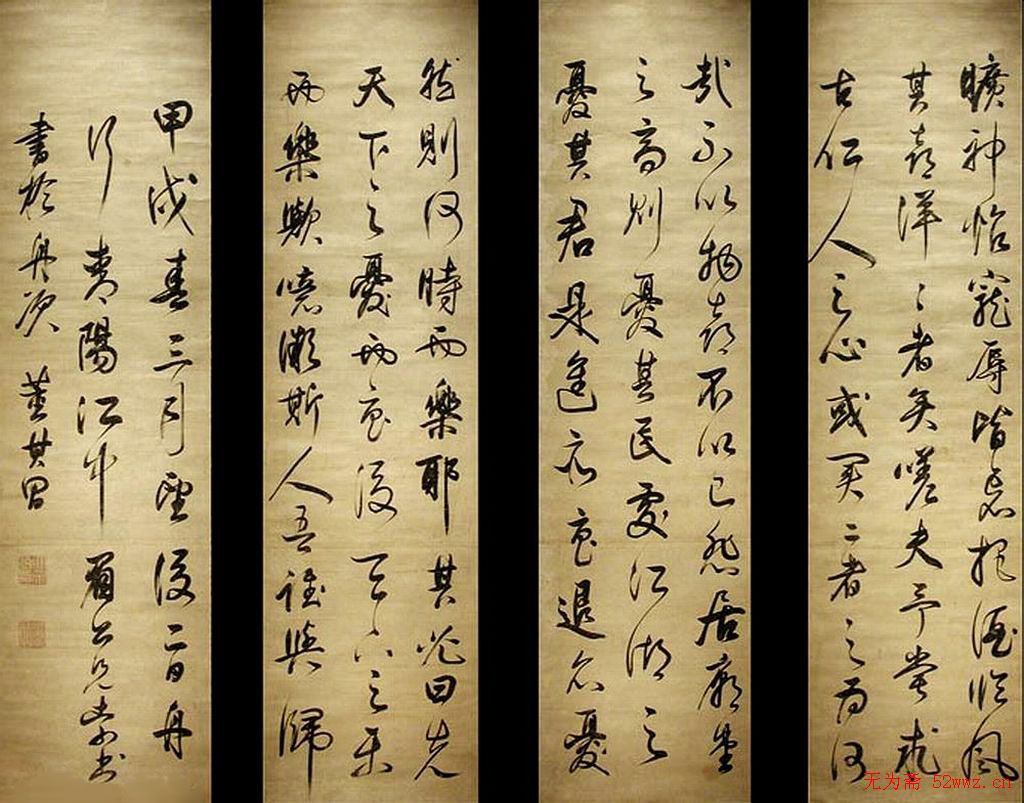 曠神怡寵辱皆忘把酒臨風
其喜洋々者矣嗟夫予嘗求
古仁人之心或異二者之為何
哉不以物喜不以己悲居廟堂
之高則憂其民處江湖之
憂其君是進亦憂退亦憂
然則何時而樂耶其必曰先
天下之憂而憂後天下之樂
而樂歟噫微斯人吾誰與歸
甲戌春三月望後二日舟
行陽江中眉公兄索書
書於舟次董其昌
无为斋 52wwz.cn